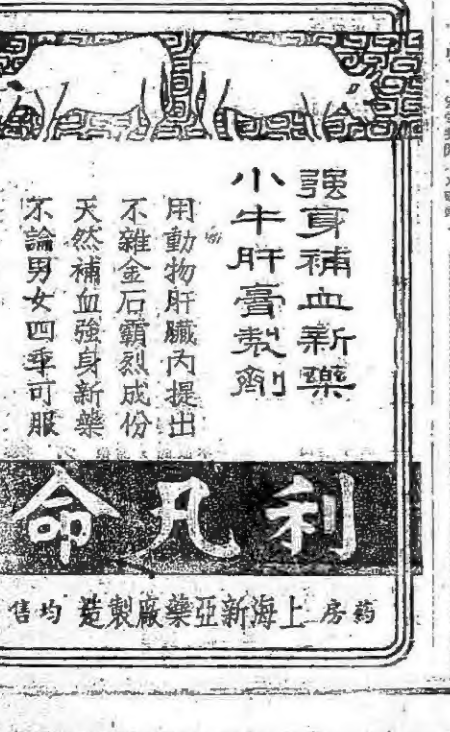 强身補血新藥
小牛肝膏製劑
用動物肝臟內提出
不雜金石霸烈成份
天然補血強身新藥
不論男女四季可服
利凡命
药房 上海新亞藥廠製造 均售